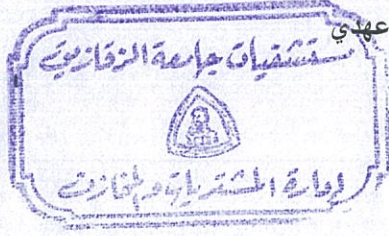 عهدي
مستشفيات جامعة الزقازيق
إدارة المشتريات والمخازن